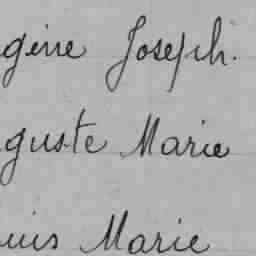 gène Joseph.
guste Marie
uis Marie